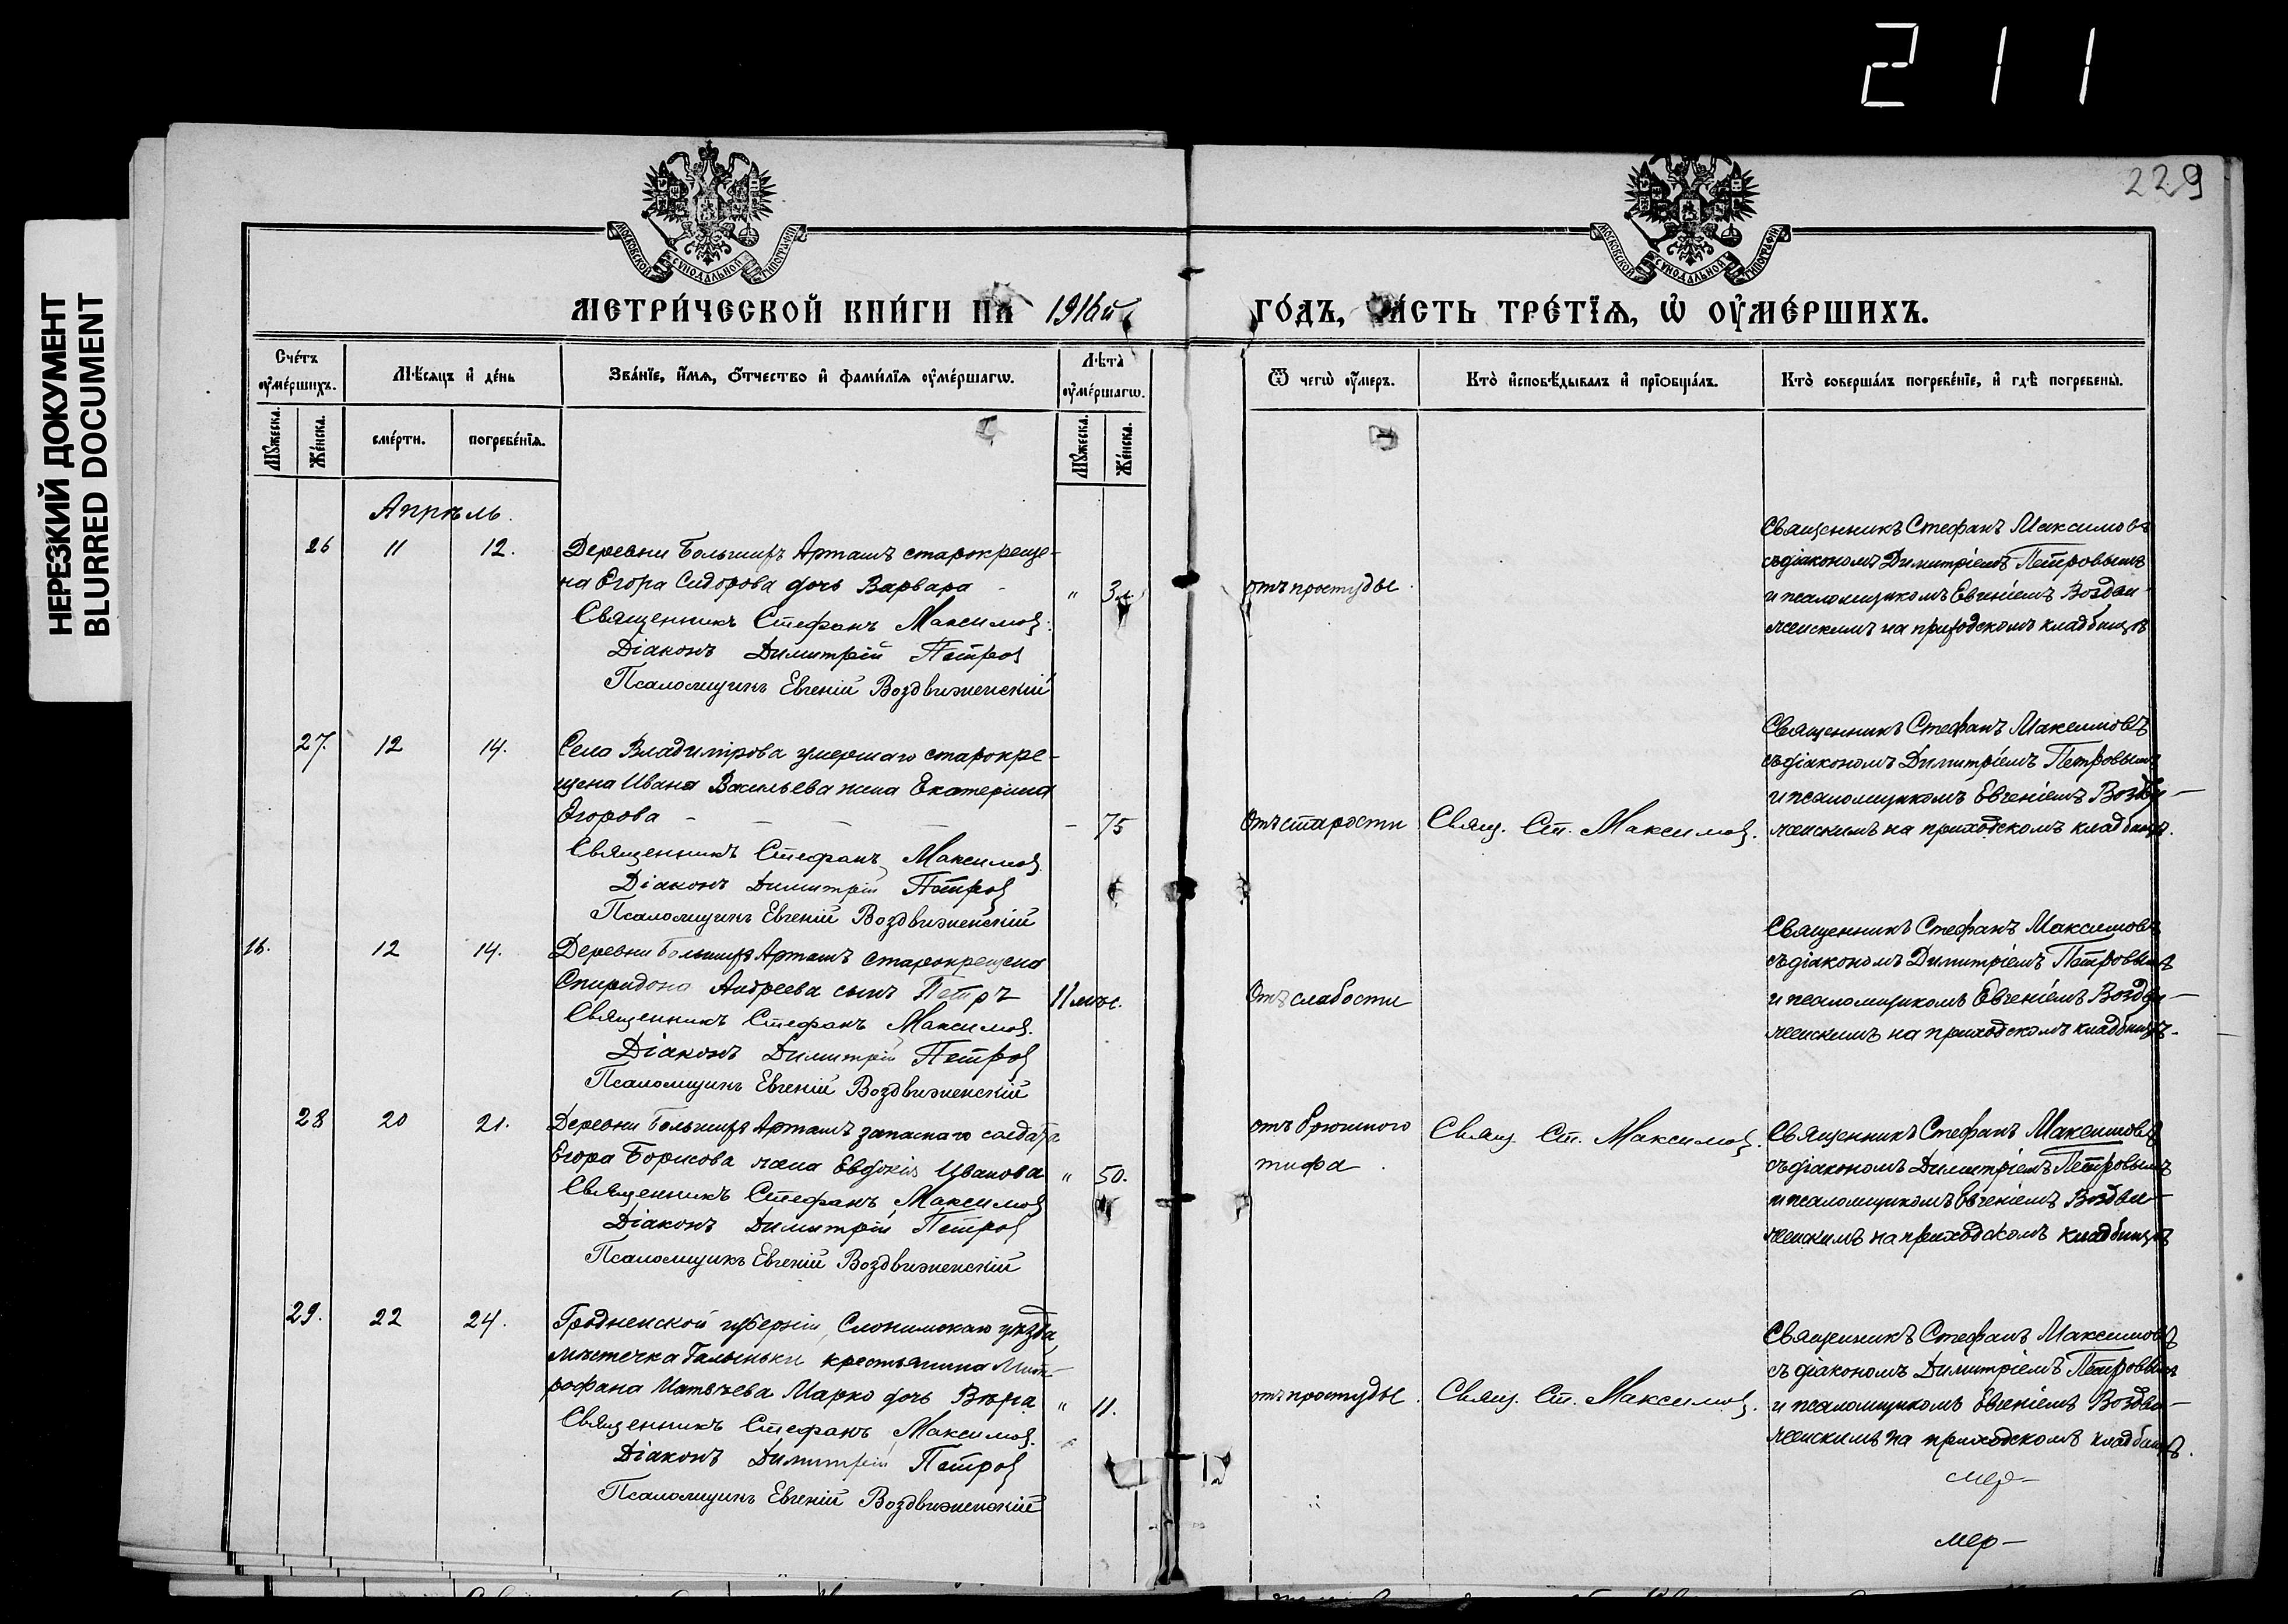 211
229
НЕРЕЗКИЙ ДОКУМЕНТ
BLURRED DOCUMENT
МОСКОВСКОЙ СѴНОДАЛЬНОЙ ТИПОГРАФІИ
МОСКОВСКОЙ СѴНОДАЛЬНОЙ ТИПОГРАФІИ
МЕТРИ́ЧЕСКОЙ КНИ́ГИ НА 1916й
ГО́ДЪ, ЧА́СТЬ ТРЕ́ТЇѦ, Ѡ҆ ОУ҆МЕ́РШИХЪ.
Сче́тъ оу҆ме́ршихъ.
Мꙋ́жеска.
Же́нска.
Мѣ́сяцъ и҆ де́нь
сме́рти.
погребе́нїѧ.
Зва́нїе, и҆́мѧ, ѻ҆́тчество и҆ фами́лїѧ оу҆ме́ршагѡ.
Лѣ́та оу҆ме́ршагѡ.
Мꙋ́жеска.
Же́нска.
Ѿ чегѡ̀ оу҆́меръ.
Кто̀ и҆сповѣ́дывалъ и҆ прїѡбща́лъ.
Кто̀ соверша́лъ погребе́нїе, и҆ гдѣ̀ погребены̀.
Апрѣль.
26 11 12.
Деревни Большихъ Арташъ старокреще-
на Егора Сидорова дочь Варвара " 3
Священникъ Стефанъ Максимовъ.
Діаконъ Димитрій Петровъ
Псаломщикъ Евгеній Воздвиженскій
отъ простуды.
Священникъ Стефанъ Максимовъ
съ діакономъ Димитріемъ Петровымъ
и псаломщикомъ Евгеніемъ Воздви-
женскимъ на приходскомъ кладбищѣ
27. 12 14.
Села Владимірова умершаго старокре-
щена Ивана Васильева жена Екатерина
Егорова - - - - - 75
Священникъ Стефанъ Максимовъ
Діаконъ Димитрій Петровъ
Псаломщикъ Евгеній Воздвиженскій
Отъ старости
Свящ. Ст. Максимовъ.
Священникъ Стефанъ Максимовъ
съ діакономъ Димитріемъ Петровымъ
и псаломщикомъ Евгеніемъ Воздви-
женскимъ на приходскомъ кладбищѣ.
16. 12 14.
Деревни Большихъ Арташъ старокрещена
Спиридона Андреева сынъ Петръ 11 мѣс.
Священникъ Стефанъ Максимовъ.
Діаконъ Димитрій Петровъ
Псаломщикъ Евгеній Воздвиженскій
Отъ слабости
Священникъ Стефанъ Максимовъ
съ діакономъ Димитріемъ Петровымъ
и псаломщикомъ Евгеніемъ Воздви-
женскимъ на приходскомъ кладбищѣ.
28 20 21.
Деревни Большихъ Арташъ запаснаго солдата
Егора Борисова жена Евдокія Иванова " 50.
Священникъ Стефанъ Максимовъ
Діаконъ Димитрій Петровъ
Псаломщикъ Евгеній Воздвиженскій
отъ брюшного
тифа.
Свящ. Ст. Максимовъ.
Священникъ Стефанъ Максимовъ
съ діакономъ Димитріемъ Петровымъ
и псаломщикомъ Евгеніемъ Воздви-
женскимъ на приходскомъ кладбищѣ
29. 22 24.
Гродненской губерніи, Слонимскаго уѣзда,
мѣстечка Галыньки крестьянина Мит-
рофана Матвѣева Марко дочь Вѣра " 11.
Священникъ Стефанъ Максимовъ.
Діаконъ Димитрій Петровъ
Псаломщикъ Евгеній Воздвиженскій
отъ простуды.
Свящ. Ст. Максимовъ.
Священникъ Стефанъ Максимовъ
съ діакономъ Димитріемъ Петровымъ
и псаломщикомъ Евгеніемъ Воздви-
женскимъ на приходскомъ кладбищѣ.
мер-